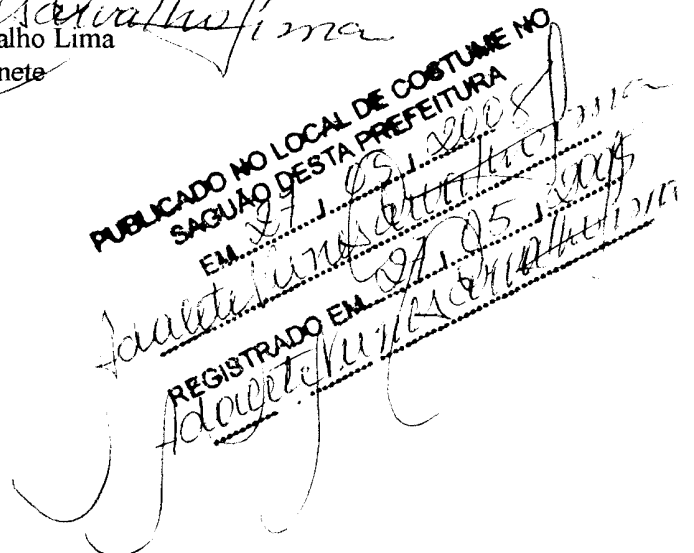 Carvalho Lima
alho Lima
nete
PUBLICADO NO LOCAL DE COSTUME NO
SAGUÃO DESTA PREFEITURA
EM 27 / 05 / 2008
Nunes Carvalho Lima
REGISTRADO EM 27 / 05 / 2008
Nunes Carvalho Lima